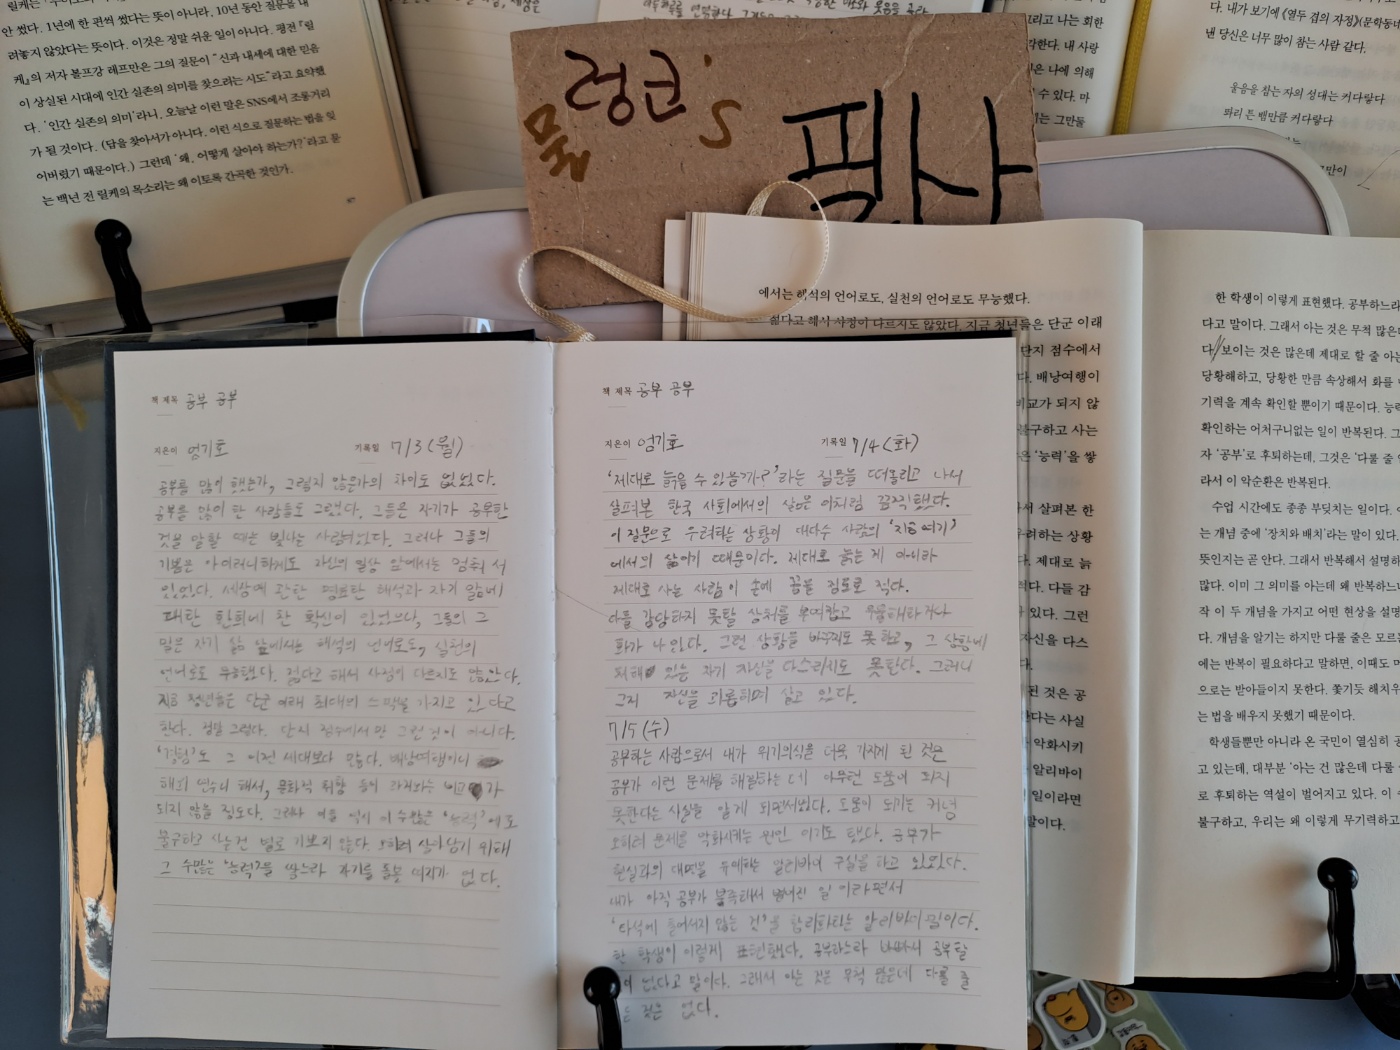 안 썼다. 1년에 한 편씩 썼다는 뜻이 아니라, 10년 동안 질문을 내
려놓지 않았다는 뜻이다. 이것은 정말 쉬운 일이 아니다. 평전 『릴
케』의 저자 볼프강 레프만은 그의 질문이 "신과 내세에 대한 믿음
이 상실된 시대에 인간 실존의 의미를 찾으려는 시도"라고 요약했
다. '인간 실존의 의미'라니, 오늘날 이런 말은 SNS에서 조롱거리
가 될 것이다. (답을 찾아서가 아니다. 이런 식으로 질문하는 법을 잊
어버렸기 때문이다.) 그런데 '왜, 어떻게 살아야 하는가?'라고 묻
는 백년 전 릴케의 목소리는 왜 이토록 간곡한 것인가.
렁코's
필사
다. 내가 보기에 《열두 겹의 자정》(문학동네
낸 당신은 너무 많이 참는 사람 같다.
울음을 참는 자의 성대는 커다랗다
똬리 튼 뱀만큼 커다랗다
에서는 해석의 언어로도, 실천의 언어로도 무능했다.
젊다고 해서 사정이 다르지도 않았다. 지금 청년들은 단군 이래
단지 점수에서
다. 배낭여행이
비교가 되지 않
불구하고 사는
은 '능력'을 쌓
서 살펴본 한
려하는 상황
다. 제대로 늙
다. 다들 감
있다. 그런
자신을 다스
된 것은 공
다는 사실
악화시키
알리바이
일이라면
말이다.
한 학생이 이렇게 표현했다. 공부하느라
다고 말이다. 그래서 아는 것은 무척 많은
다. 보이는 것은 많은데 제대로 할 줄 아는
당황해하고, 당황한 만큼 속상해서 화를
기력을 계속 확인할 뿐이기 때문이다. 능력
확인하는 어처구니없는 일이 반복된다. 그
자 '공부'로 후퇴하는데, 그것은 '다룰 줄
라서 이 악순환은 반복된다.
수업 시간에도 종종 부딪치는 일이다.
는 개념 중에 '장치와 배치'라는 말이 있다.
뜻인지는 곧 안다. 그래서 반복해서 설명하
많다. 이미 그 의미를 아는데 왜 반복하느
작 이 두 개념을 가지고 어떤 현상을 설명
다. 개념을 알기는 하지만 다룰 줄은 모르
에는 반복이 필요하다고 말하면, 이때도
으로는 받아들이지 못한다. 쫓기듯 해치우
는 법을 배우지 못했기 때문이다.
학생들뿐만 아니라 온 국민이 열심히 공
고 있는데, 대부분 '아는 건 많은데 다룰
로 후퇴하는 역설이 벌어지고 있다. 이
불구하고, 우리는 왜 이렇게 무기력하고
책 제목 공부 공부
지은이 엄기호 기록일 7/3 (월)
공부를 많이 했는가, 그렇지 않은가의 차이도 없었다.
공부를 많이 한 사람들도 그랬다. 그들은 자기가 공부한
것을 말할 때는 빛나는 사람이었다. 그러나 그들의
기쁨은 아이러니하게도 자신의 일상 앞에서는 멈춰 서
있었다. 세상에 관한 명료한 해석과 자기 앎에
대한 환희에 찬 확신이 있었으나, 그들의 그
말은 자기 삶 앞에서는 해석의 언어로도, 실천의
언어로도 무능했다. 젊다고 해서 사정이 다르지도 않았다.
지금 청년들은 단군 이래 최대의 스펙을 가지고 있다고
한다. 정말 그렇다. 단지 점수에서만 그런 것이 아니다.
'경험'도 그 어떤 세대보다 많다. 배낭여행이니
해외 연수니 해서, 문화적 취향 등이 라져와는 비교가
되지 않을 정도다. 그런데 이들 역시 이 수많은 '능력'에도
불구하고 사는 건 별로 기쁘지 않다. 오히려 살아남기 위해
그 수많은 '능력'을 쌓느라 자기를 돌볼 여지가 없다.
책 제목 공부 공부
지은이 엄기호 기록일 7/4 (화)
'제대로 늙을 수 있을까?'라는 질문을 떠올리고 나서
살펴본 한국 사회에서의 삶은 이처럼 끔찍했다.
이 질문으로 우려하는 상황이 대다수 사람의 '지금 여기'
에서의 삶이기 때문이다. 제대로 늙는 게 아니라
제대로 사는 사람이 손에 꼽을 정도로 적다.
다들 감당하지 못할 상처를 부여잡고 우울해하거나
화가 나 있다. 그런 상황을 바꾸지도 못하고, 그 상황에
처해 있는 자기 자신을 다스리지도 못한다. 그러니
그저 자신을 괴롭히며 살고 있다.
7/5 (수)
공부하는 사람으로서 내가 위기의식을 더욱 가지게 된 것은
공부가 이런 문제를 해결하는 데 아무런 도움이 되지
못한다는 사실을 알게 되면서였다. 도움이 되기는 커녕
오히려 문제를 악화시키는 원인 이기도 했다. 공부가
현실과의 대면을 유예하는 알리바이 구실을 하고 있었다.
내가 아직 공부가 부족해서 벌어진 일 이라면서
'다석에 들어서지 않는 것'을 합리화하는 알리바이 말이다.
한 학생이 이렇게 표현했다. 공부하느라 바빠서 공부할
이 없다고 말이다. 그래서 아는 것은 무척 많은데 다룰 줄
는 것은 없다.